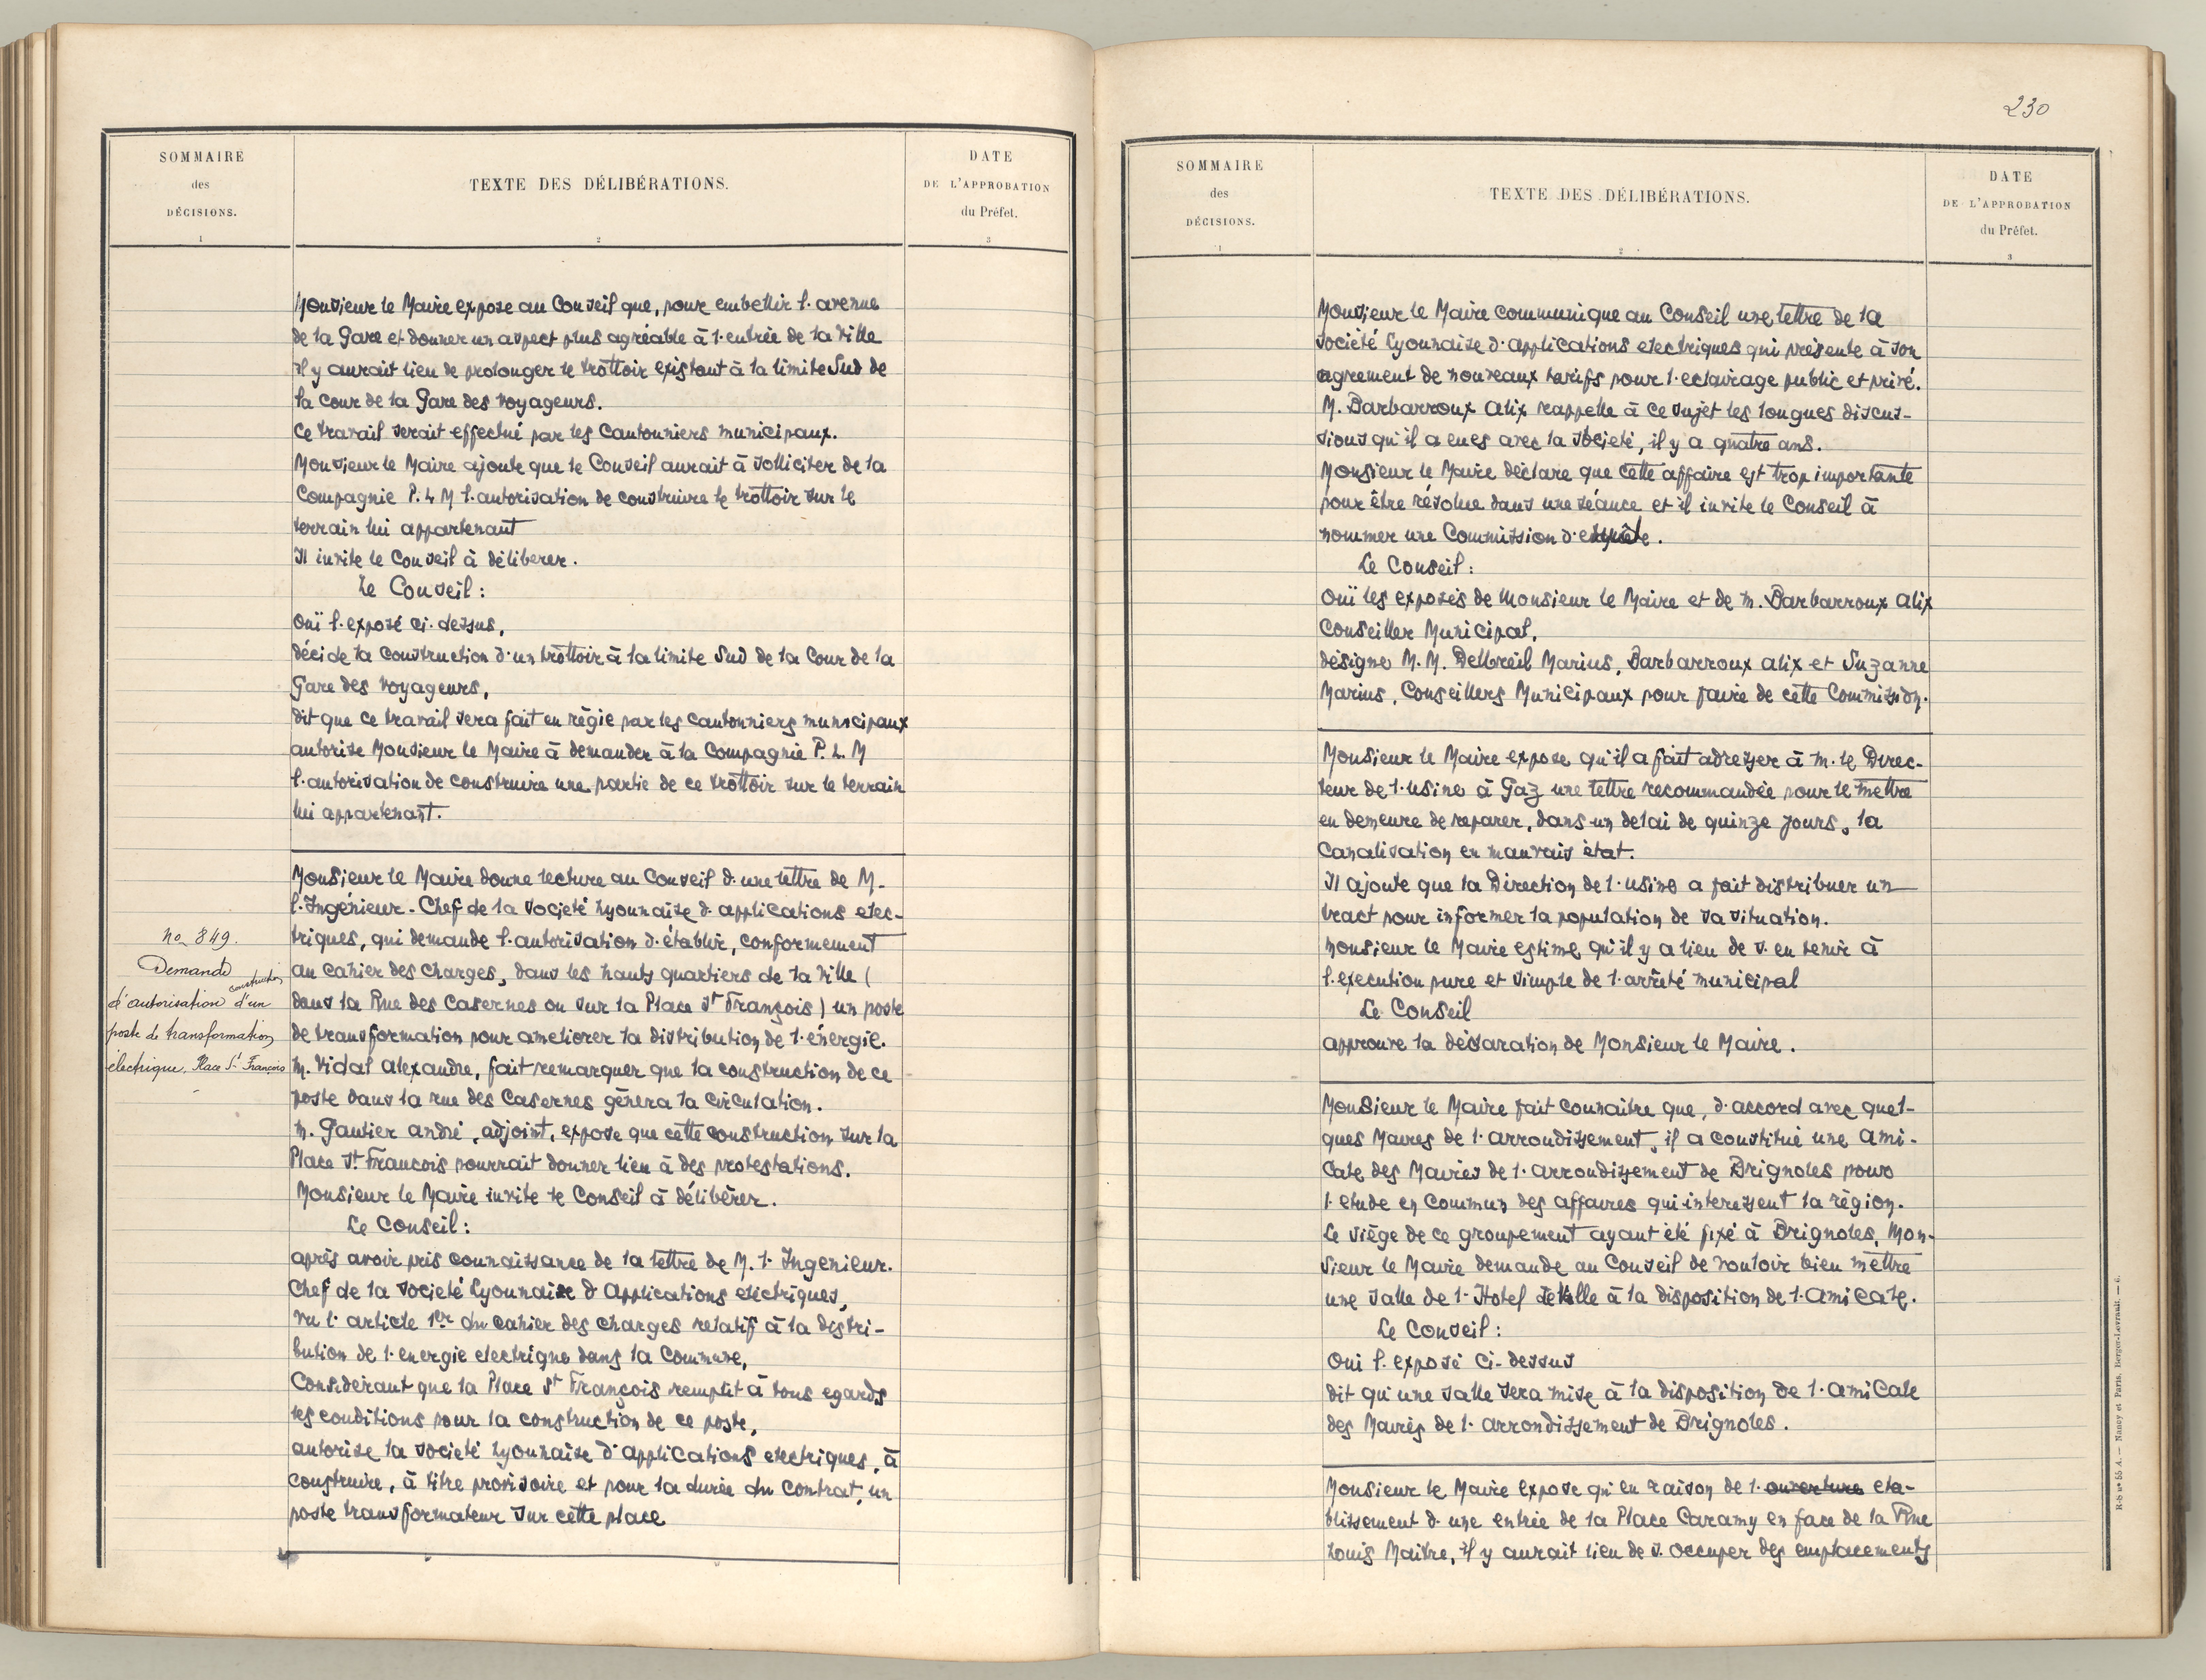 SOMMAIRE
des
DÉCISIONS.
1
TEXTE DES DÉLIBÉRATIONS.
2
DATE
DE L'APPROBATION
du Préfet.
3
Monsieur le Maire expose au Conseil que, pour embellir l'avenue
de la Gare et donner un aspect plus agréable à l'entrée de la ville
il y aurait lieu de prolonger le trottoir existant à la limite Sud de
la cour de la Gare des voyageurs.
Ce travail serait effectué par les Cantonniers municipaux.
Monsieur le Maire ajoute que le Conseil aurait à solliciter de la
Compagnie P. L M l'autorisation de construire le trottoir sur le
terrain lui appartenant
Il invite le Conseil à déliberer.
Le Conseil :
Ouï l'exposé ci-dessus,
décide la construction d'un trottoir à la limite Sud de la Cour de la
Gare des voyageurs,
dit que ce travail sera fait en régie par les cantonniers municipaux
autorise Monsieur le Maire à demander à la Compagnie P. L. M
l'autorisation de construire une partie de ce trottoir sur le terrain
lui appartenant.
Monsieur le Maire donne lecture au Conseil d'une lettre de M.
l'Ingénieur-Chef de la Societé Lyonnaise d'applications elec-
triques, qui demande l'autorisation d'établir, conformement
au cahier des charges, dans les hauts quartiers de la Ville (
dans la Rue des Casernes ou sur la Place St François) un poste
de transformation pour ameliorer la distribution de l'énergie.
M. Vidal Alexandre, fait remarquer que la construction de ce
poste dans la rue des Casernes gênera la circulation.
M. Gautier andré, adjoint, expose que cette construction sur la
Place St Francois pourrait donner lieu à des protestations.
Monsieur le Maire invite le Conseil à délibérer.
Le Conseil :
après avoir pris connaissance de la lettre de M. l'Ingenieur.
Chef de la Societé Lyonnaise d'Applications electriques,
Vu l'article 1er du cahier des charges relatif à la distri-
bution de l'energie electrique dans la Commune,
Considerant que la Place St François remplit à tous egards
les conditions pour la construction de ce poste,
autorise la Societé Lyonnaise d'applications electriques, à
construire, à titre provisoire et pour la durée du contrat, un
poste transformateur sur cette place
no 849.
Demande
construction
d'autorisation d'un
poste de transformation
électrique. Place St François
230
SOMMAIRE
des
DÉCISIONS.
1
TEXTE DES DÉLIBÉRATIONS.
2
DATE
DE L'APPROBATION
du Préfet.
3
Monsieur le Maire communique au Conseil une lettre de la
Société Lyonnaise d'applications electriques qui présente à son
agrement de nouveaux tarifs pour l'eclairage public et privé.
M. Barbarroux Alix rappelle à ce sujet les longues discus-
sions qu'il a eues avec la Société, il y a quatre ans.
Monsieur le Maire déclare que cette affaire est trop importante
pour être résolue dans une séance et il invite le Conseil à
nommer une Commission d'enquête.
Le Conseil :
Ouï les exposés de Monsieur le Maire et de M. Barbarroux Alix
Conseiller Municipal,
désigne M.M. Delbreil Marius, Barbarroux alix et Suzanne
Marius, Conseillers Municipaux pour faire de cette Commission.
Monsieur le Maire expose qu'il a fait adresser à M. le Direc-
teur de l'Usine à Gaz une lettre recommandée pour le mettre
en demeure de reparer, dans un delai de quinze jours, la
Canalisation en mauvais état.
Il ajoute que la Direction de l'usine a fait distribuer un
tract pour informer la population de sa situation.
Monsieur le Maire estime qu'il y a lieu de s'en tenir à
l'execution pure et simple de l'arrêté municipal
Le Conseil
approuve la déclaration de Monsieur le Maire.
Monsieur le Maire fait connaitre que, d'accord avec quel-
ques Maires de l'arrondissement, il a constitué une Ami-
cale des Maires de l'arrondissement de Brignoles pour
l'etude en commun des affaires qui interessent la région.
Le siège de ce groupement ayant été fixé à Brignoles, Mon-
sieur le Maire demande au Conseil de vouloir bien mettre
une salle de l'Hotel de Ville à la disposition de l'Amicale.
Le Conseil :
Oui l'exposé ci-dessus
dit qu'une salle sera mise à la disposition de l'Amicale
des Maires de l'arrondissement de Brignoles.
Monsieur le Maire expose qu'en raison de l'ouverture eta-
blissement d'une entrée de la Place Caramy en face de la Rue
Louis Maitre, il y aurait lieu de s'occuper des emplacements
R-b nº 55 A. — Nancy et Paris. Berger-Levrault. — 6.